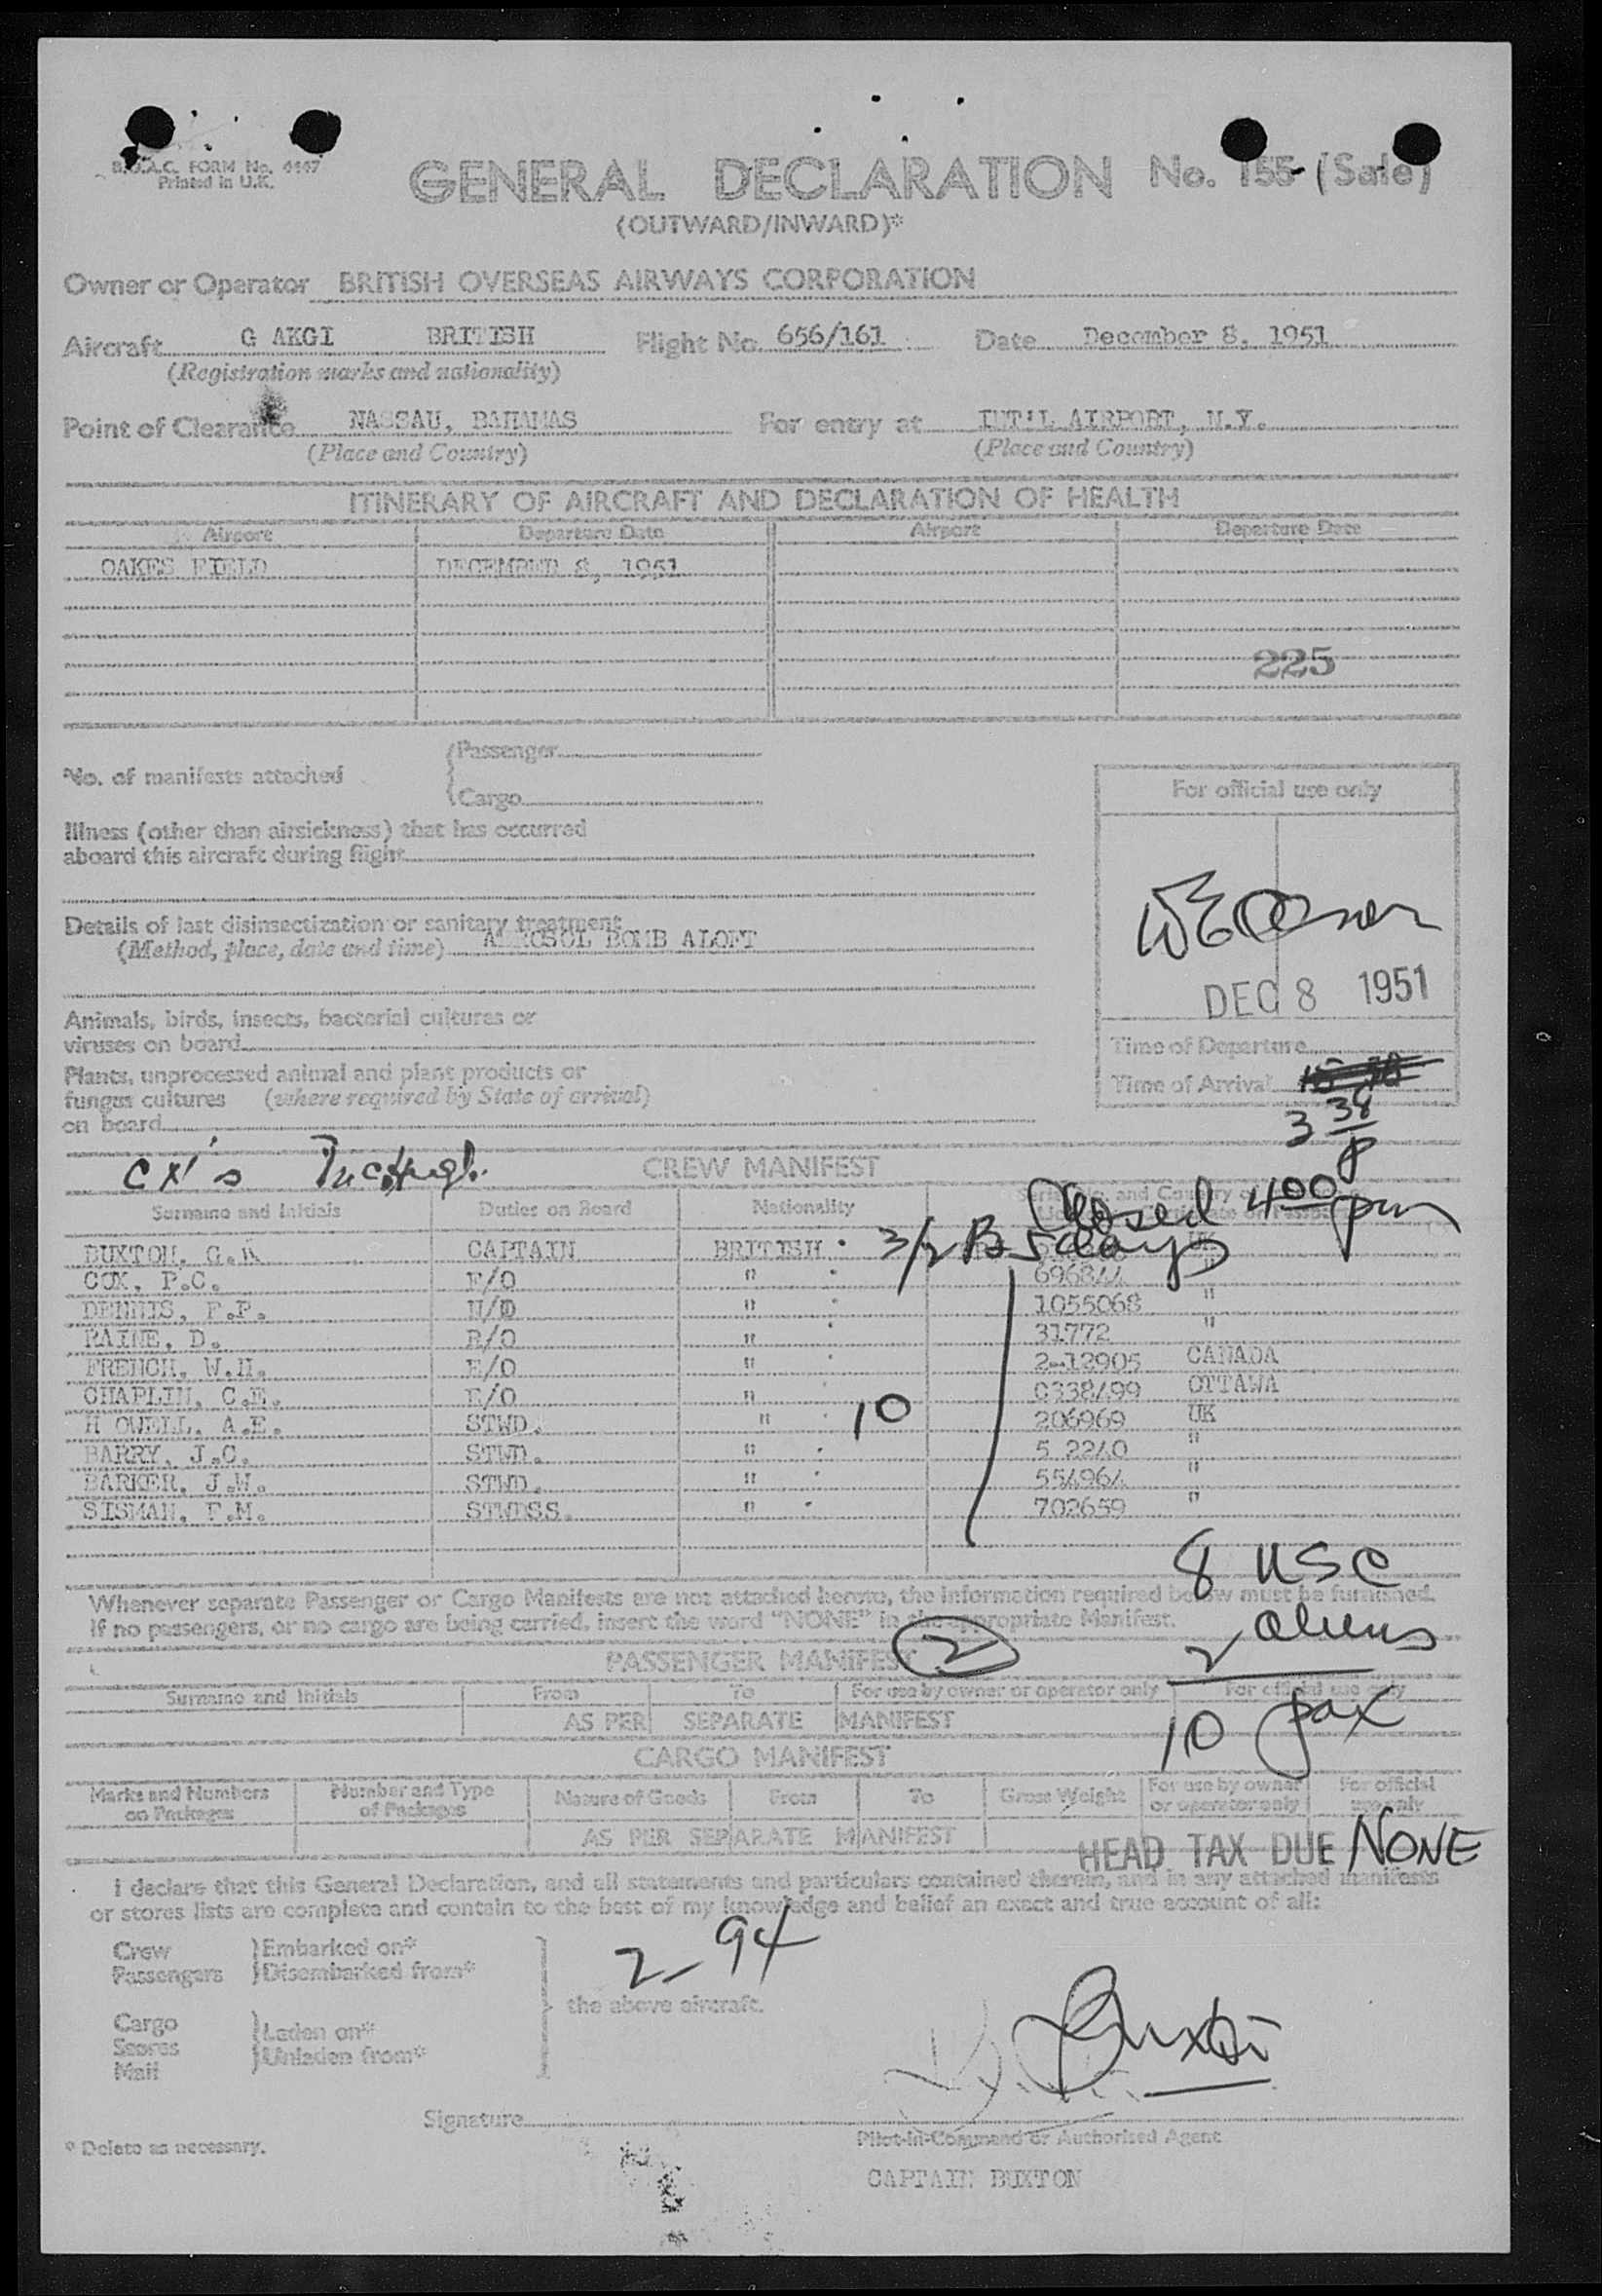 B.O.A.C. FORM No. 4447
Printed in U.K.
GENERAL DECLARATION No. 155 (Sale)
(OUTWARD/INWARD)*
Owner or Operator BRITISH OVERSEAS AIRWAYS CORPORATION
Aircraft G AKGI BRITISH Flight No. 656/161 Date December 8, 1951
(Registration marks and nationality)
Point of Clearance NASSAU, BAHAMAS For entry at INT'L AIRPORT, N.Y.
(Place and Country) (Place and Country)
ITINERARY OF AIRCRAFT AND DECLARATION OF HEALTH
Airport Departure Date Airport Departure Date
OAKES FIELD DECEMBER 8, 1951
225
No. of manifests attached
Passenger
Cargo
For official use only
Illness (other than airsickness) that has occurred
aboard this aircraft during flight
Details of last disinsectization or sanitary treatment
(Method, place, date and time) AEROSOL BOMB ALOFT
DEC 8 1951
Animals, birds, insects, bacterial cultures or
viruses on board
Time of Departure
Plants, unprocessed animal and plant products or
fungus cultures (where required by State of arrival)
on board
Time of Arrival
3 38 P
CREW MANIFEST
Closed 4 00 pm
Surname and Initials Duties on Board Nationality
3/2 B 5 days
BUXTON, G. CAPTAIN BRITISH UK
COX, P.C. F/O " 696844 "
DENNIS, F.P. N/O " 1055068 "
RAINE, D. R/O " 31772 "
FRENCH, W.H. E/O " 2-12905 CANADA
CHAPLIN, C.E. E/O " 0338499 OTTAWA
H OWELL, A.E. STWD. " 10 206969 UK
BARRY, J.C. STWD. " 5 2240 "
BARKER, J.W. STWD. " 554964 "
SISMAN, F.M. STWDSS. " 702659 "
8 USC
Whenever separate Passenger or Cargo Manifests are not attached hereto, the information required below must be furnished.
If no passengers, or no cargo are being carried, insert the word "NONE" in the appropriate Manifest.
2 aliens
PASSENGER MANIFEST 2
Surname and Initials From To For use by owner or operator only For official use only
AS PER SEPARATE MANIFEST
10 pax
CARGO MANIFEST
Marks and Numbers on Packages Number and Type of Packages Nature of Goods From To Gross Weight For use by owner or operator only For official use only
AS PER SEPARATE MANIFEST
HEAD TAX DUE NONE
I declare that this General Declaration, and all statements and particulars contained therein, and in any attached manifests
or stores lists are complete and contain to the best of my knowledge and belief an exact and true account of all:
2-94
Crew Embarked on*
Passengers Disembarked from*
the above aircraft.
Cargo
Stores
Mail
Laden on*
Unladen from*
Buxton
Signature
Pilot-in-Command or Authorised Agent
* Delete as necessary.
CAPTAIN BUXTON